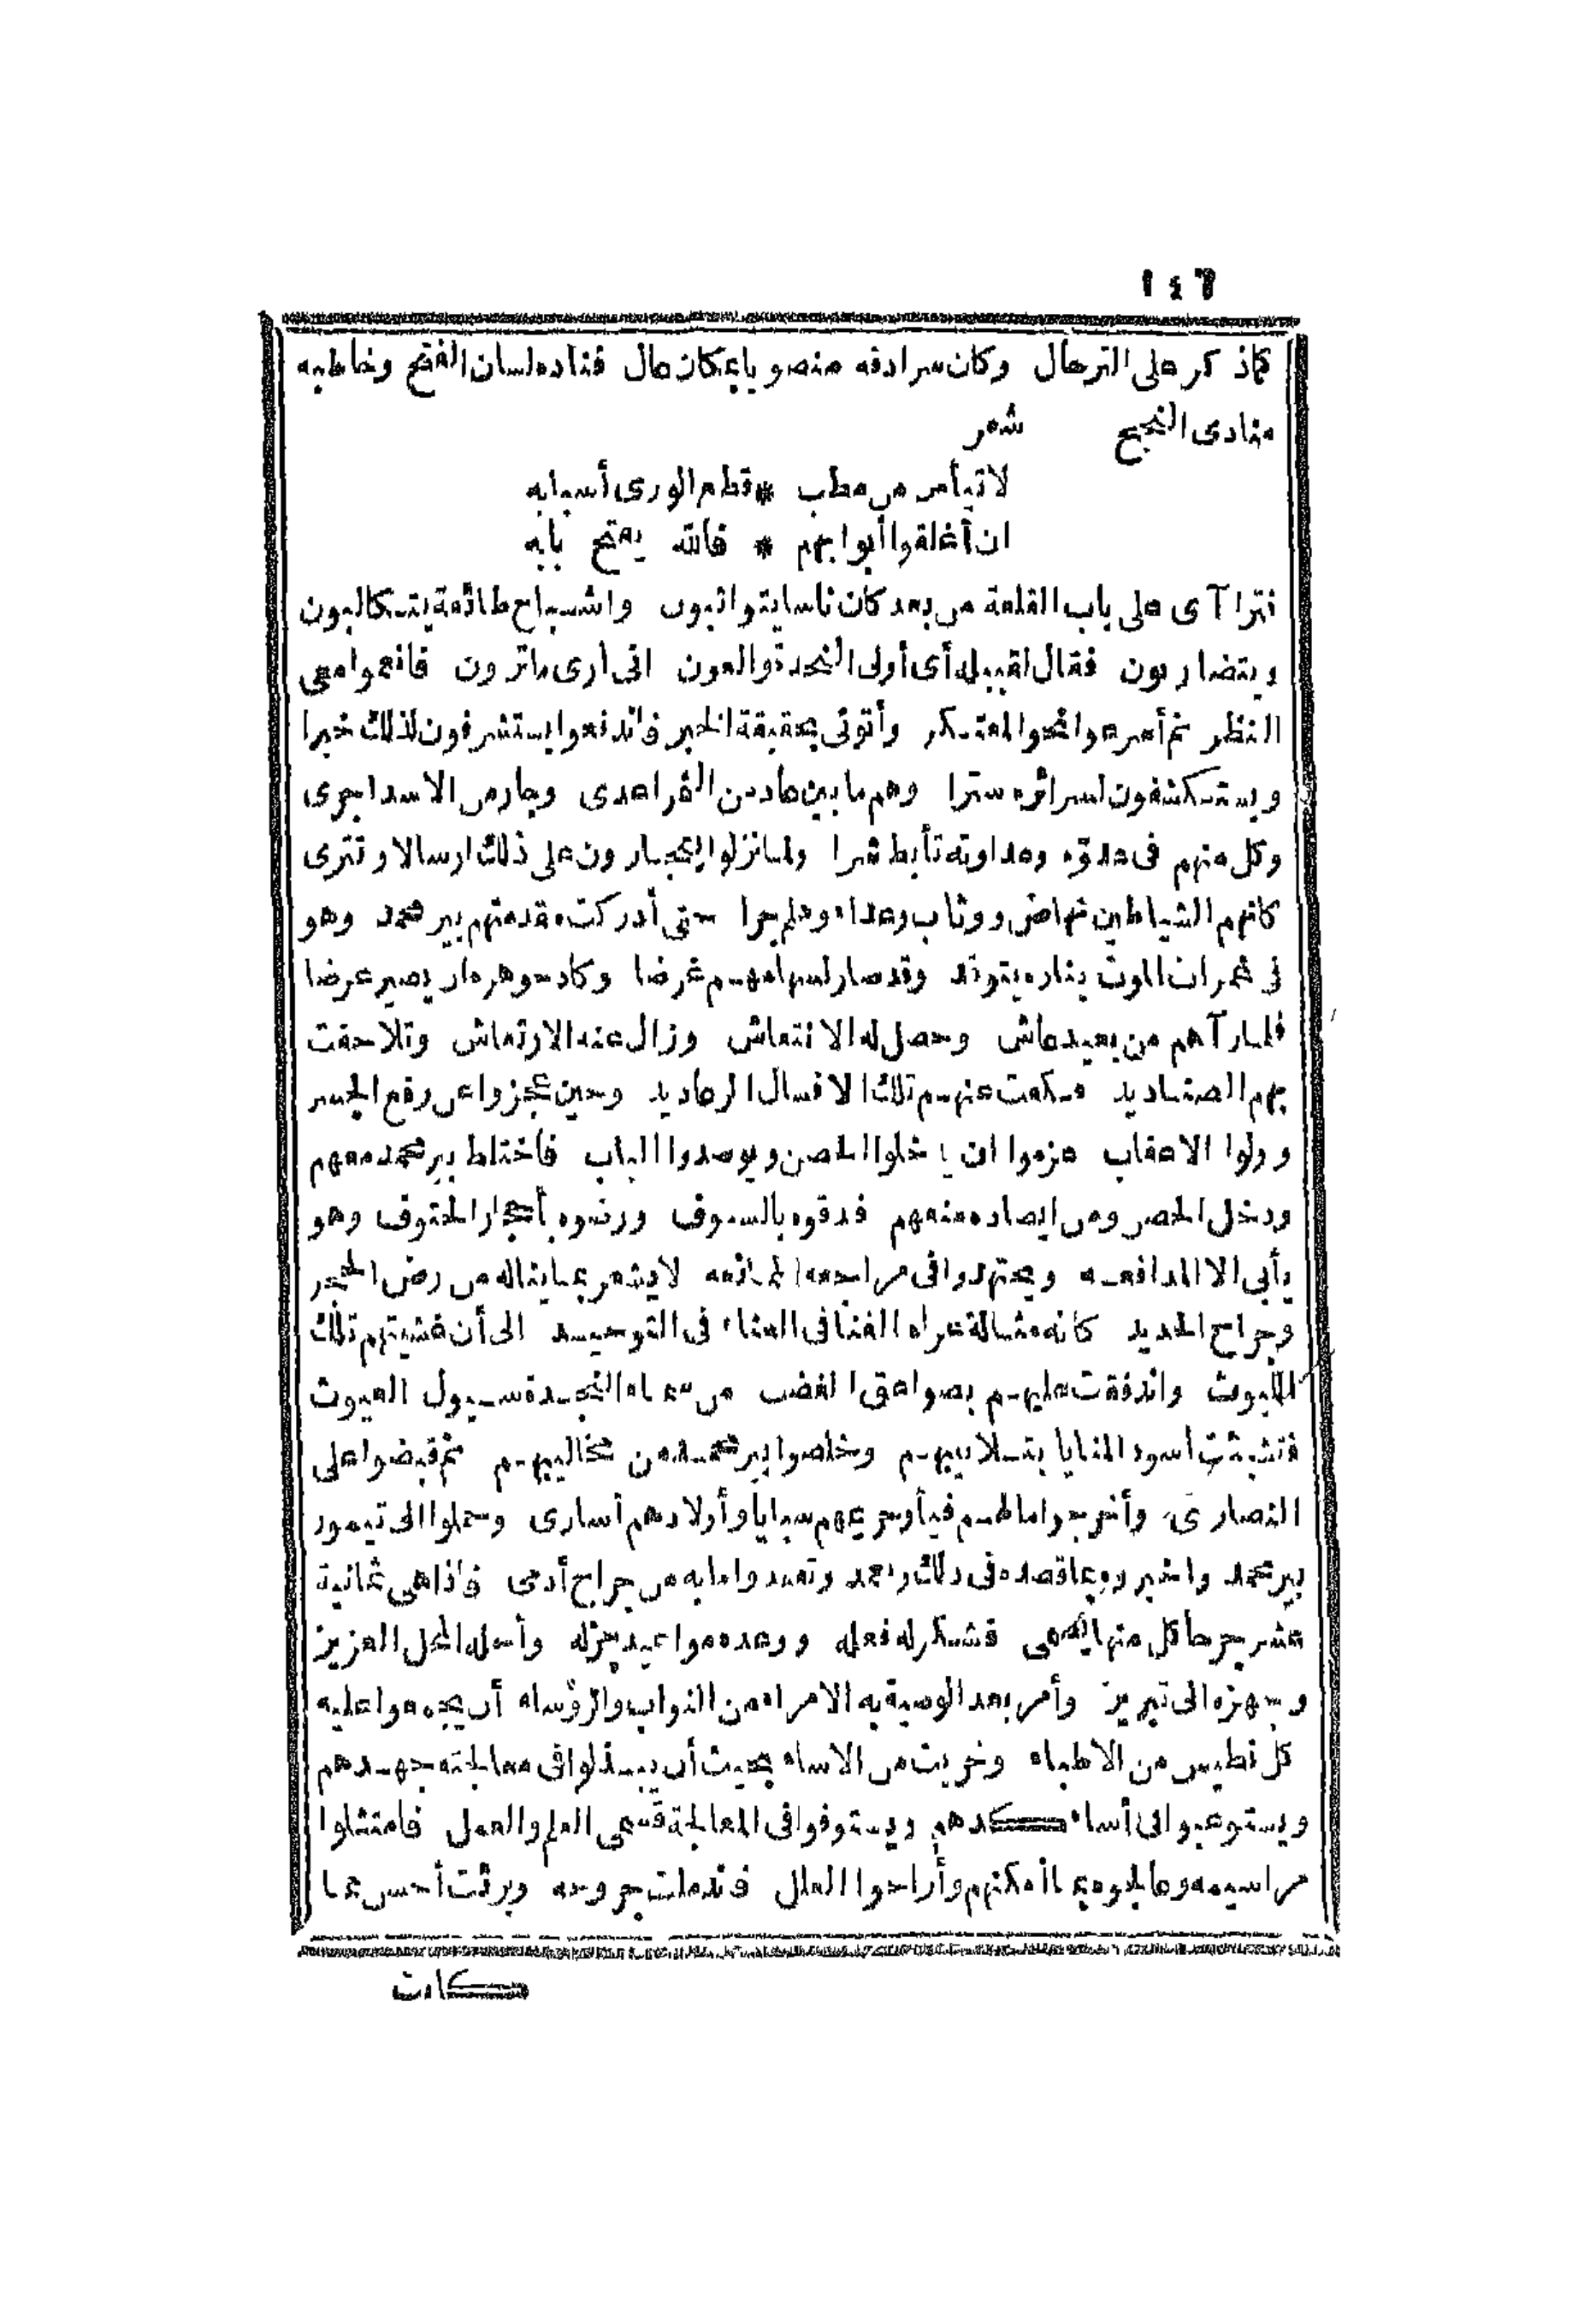 ١٤٦
كماذكر على الترحال وكان سرادقه منصوبا بمكان عال فناداه لسان الفتح وخاطبه
منادى النجيح شعر
لا تيأسن من مطلب * قطع الورى أسبابه
ان أغلقوا أبوابهم * فالله يفتح بابه
فتراآى على باب القلعة من بعد كان ناسا يتواثبون واشباح طائفة يتكالبون
ويتضاربون فقال لقبيله أى أولى النجدة والعون انى أرى ماترون فانعموا معى
النظر ثم أسرعوا نحو المعتكر وأتونى بحقيقة الخبر فاندفعوا يستشرفون لذلك خبرا
ويستكشفون لسرائره سترا وهم ما بين عاد من الفرا عدى وجار من الاسد اجرى
وكل منهم فى عدوه وعداوته تأبط شرا ولما نزلوا يتجارون على ذلك ارسالا وتترى
كانهم الشياطين نهاض ووثاب وعداء وهلم جرا حتى أدركت مقدمتهم بير محمد وهو
فى غمرات الموت بناره يتوقد وقد صار لسهامهم غرضا وكاد جوهره ان يصير عرضا
فلما رآهم من بعيد عاش وحصل له الانتعاش وزال عنه الارتعاش وتلاحقت
بهم الصناديد فكعت عنهم تلك الافسال الرعاديد وحين عجزوا عن رفع الجسر
وولوا الاعقاب عزموا ان يدخلوا الحصن ويوصدوا الباب فاختلط بير محمد معهم
ودخل الحصن ومن ايصاده منعهم فدقوه بالسيوف ورضوه بأحجار الحتوف وهو
يأبى الا المدافعه ويجتهد وافى مراجعه الممانعه لا يشعر بما يناله من رض الحجر
وجراح الحديد كانه مثالة عراه الفنا فى الفناء فى التوحيد الى أن غشيتهم تلك
الليوث واندفقت عليهم بصواعق الغضب من سماه النجدة سيول الغيوث
فتشبثت اسود المنايا بتلابيبهم وخلصوا بير محمد من مخاليبهم ثم قبضوا على
النصارى وأخرجوا مالهم فيأ وحريمهم سبايا وأولادهم أسارى وحملوا الى تيمور
بير محمد واخبروه بما قصده فى ذلك وتعمد وتفقدوا ما به من جراح أدمى فاذا هى ثمانية
عشر جرحا كل منها يصمى فشكر له فعله ووعده مواعيد جزله وأحله المحل العزيز
وجهزه الى تبريز وأمر بعد الوصية به الامراء من النواب والرؤساء أن يجمعوا عليه
كل نطيس من الاطباء وخريت من الاساء بحيث أن يبذلوا فى معالجته جهدهم
ويستوعبوا فى أساه كدهم ويستوفوا فى المعالجة قسمى العلم والعمل فامتثلوا
مراسيمه وعالجوه بما أمكنهم وأراحوا العلل فاندملت جروحه وبرئت أحسن مما
كانت